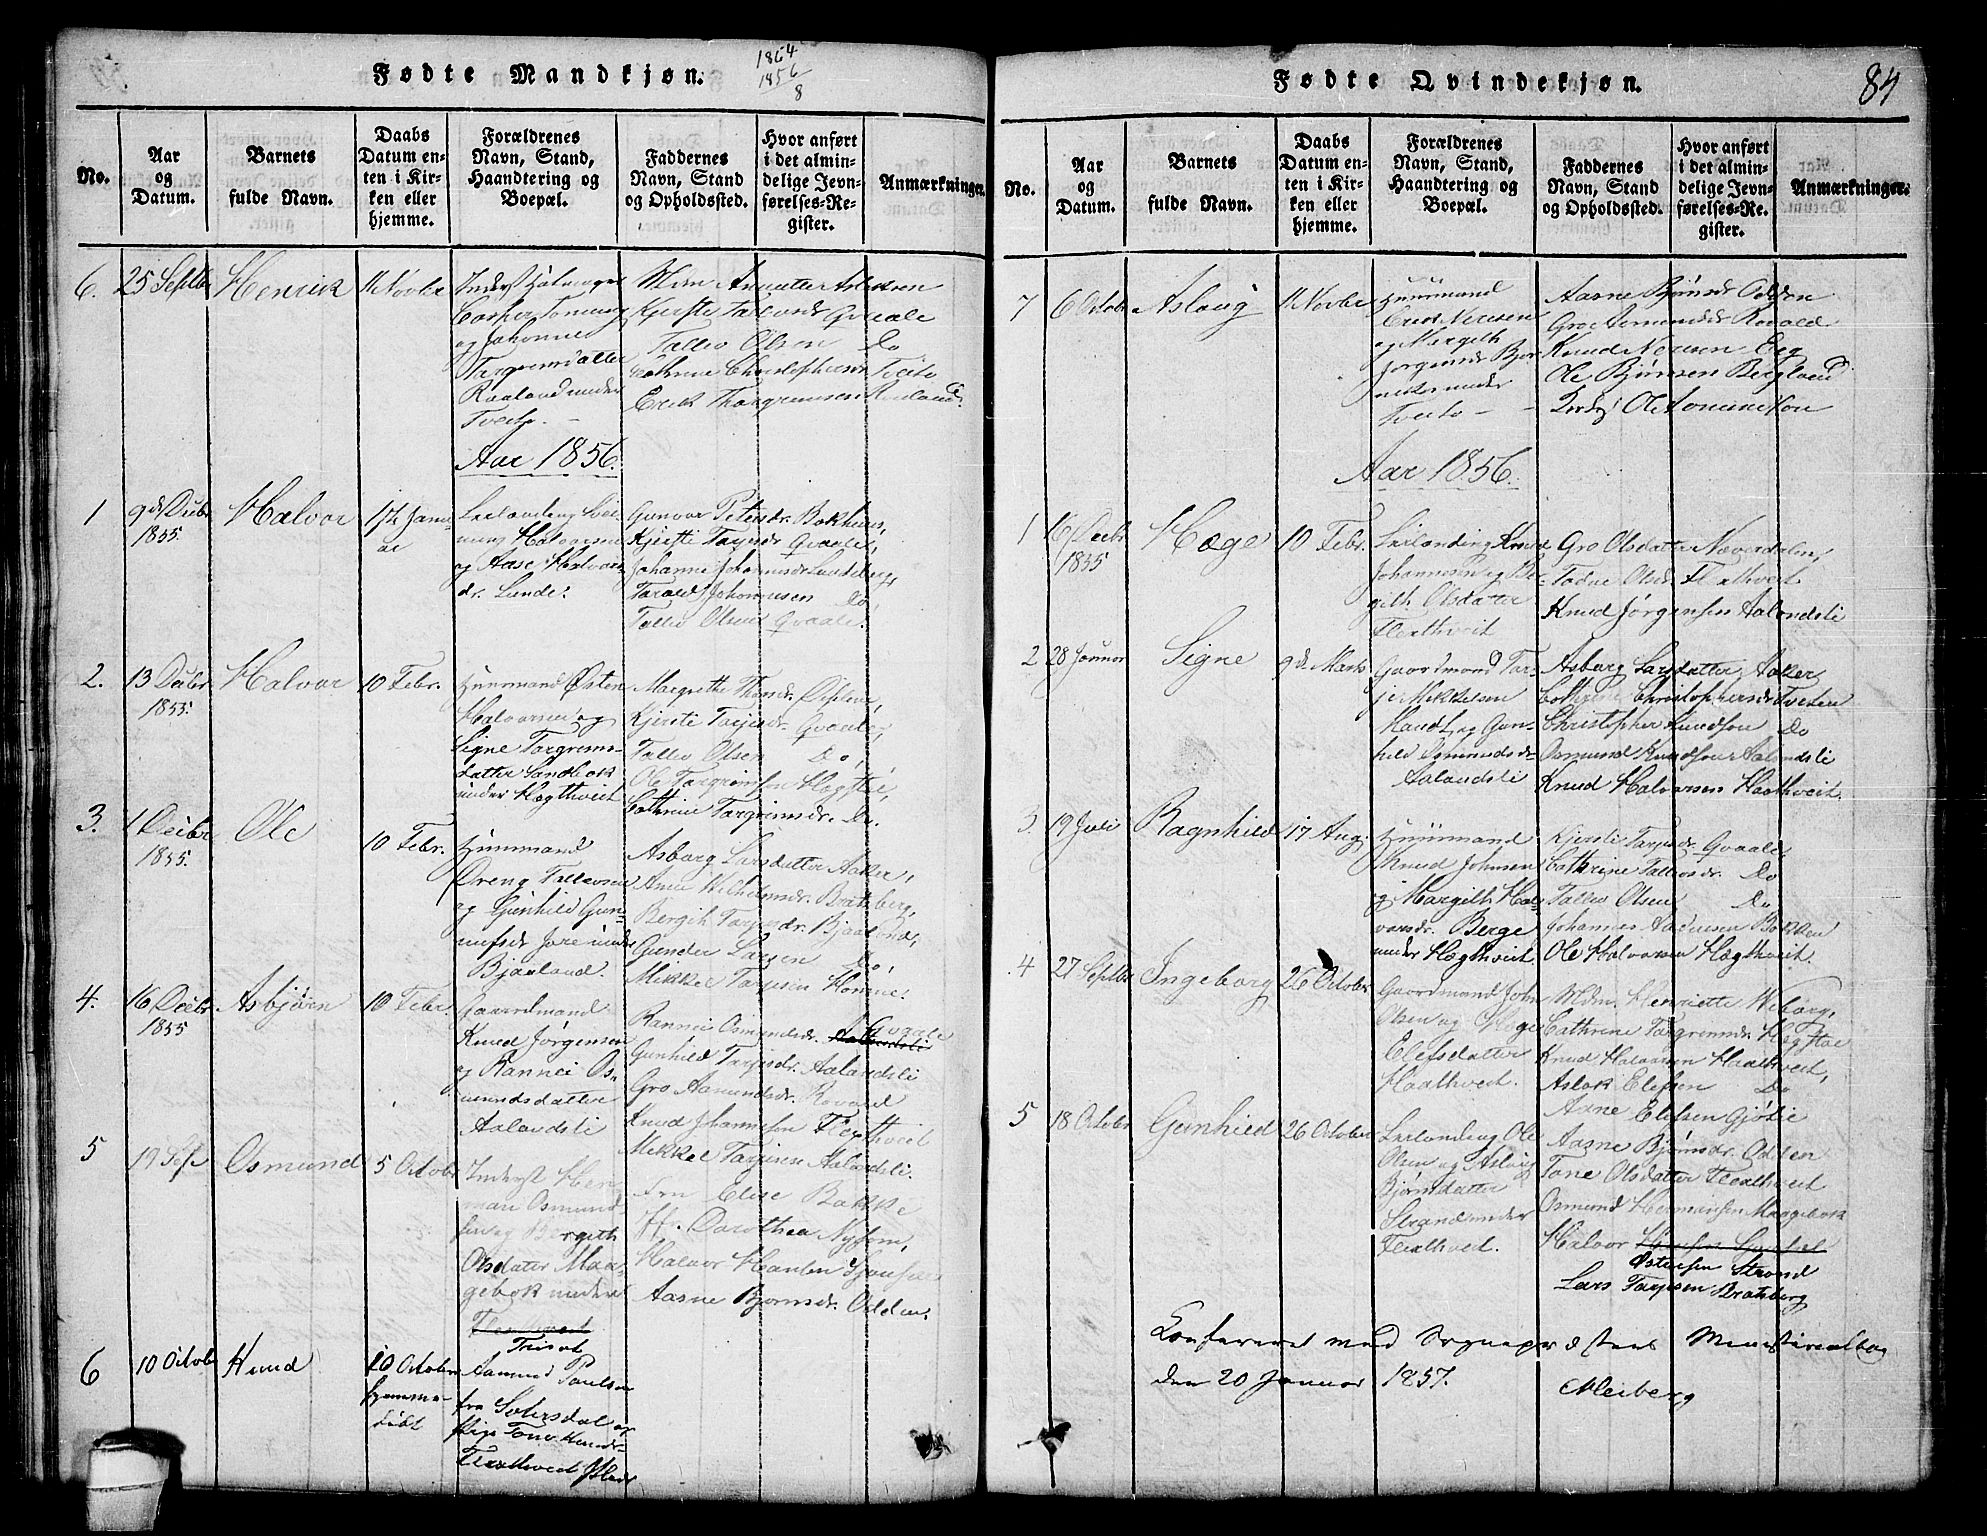 Fødte Mandkjøn.
1864
1856
8
No.
Aar
og
Datum.
Barnets
fulde Navn.
Daabs
Datum en-
ten i Kir-
ken eller
hjemme.
Forældrenes
Navn, Stand,
Haandtering og
Boepæl.
Faddernes
Navn, Stand
og Opholdssted.
Hvor anført
i det almin-
delige Jevn-
førelses-Re-
gister.
Anmærkninger.
6.
25 Septb
Henrik
11 Novbr
og Johanne
Targrimsdatter
Raaland under
Tveito.
Qvaale
Tallev Olsen Do
Cathrine Christophersen Tveito
Erik Thorgrimsen Rauland
Aar 1856.
1
9de Decbr
1855.
Halvor
17de Janu-
ar
Halvorsen
og Aase Halvors-
dr. Lunde.
Gunvor Petersdr. Bakhuus,
Kjersti Tarjesdr. Qvaale,
Johanne Johannesdr.
Tarald Johannesen Do,
Tallev Olsen Qvaale.
2.
13 Decbr
1855.
Halvor
10 Febr.
Huusmand Østen
Halvorsen og
Signe Targrims-
datter Sandbak
under Hægthveit
Margrethe
Kjersti Tarjesdr. Qvaale,
Tallev Olsen Do,
Ole Targrimsen Høgstøe,
Cathrine Targrimsdr. Do.
3.
1 Decbr
1855.
Ole
10 Febr.
Huusmand
Dreng Tallevsen
og Gunhild Gun-
nufsdr Jore under
Bjaaland.
Asborg Larsdatter Aaker,
Anne Wilhelmsdr. Bratsberg,
Bergit Tarjesdr. Bjaaland,
Gunder Larsen Do,
Mikkel Tarjesen Homme.
4.
16 Decbr
1855
Asbjørn
10 Febr
Gaardmand
Knud Jørgensen
og Rannei Os-
mundsdatter
Aalandsli
Rannei Osmundsdr. Aalandsli Qvaale
Gunhild Tarjesdr. Aalandsli
Gro Aamundsdr. Rovald
Knud Johannesen Flaathveit
Mikkel Tarjesen Aalandsli.
5
19 Sep
Osmund
5 Octobr
Inderst Her-
man Osmund-
sen og Bergith
Olsdater Maa-
gebok under
Flaathveit
Trisæt
Fru Elise Bakke
Fr. Dorothea Nysom,
Halvor Hansen
Aasne Bjørnsdr. Odden.
6
10 Octobr
Knud
10 Octobr
hjemme-
døbt
Samuel Paulsen
fra Sætersdal og
Pige Tone Knuds-
Flaathveit
Fødte Qvindekjøn.
84
No.
Aar
og
Datum.
Barnets
fulde Navn.
Daabs
Datum en-
ten i Kir-
ken eller
hjemme.
Forældrenes
Navn, Stand,
Haandtering og
Boepæl.
Faddernes
Navn, Stand
og Opholdssted.
Hvor anført
i det almin-
delige Jevn-
førelses-Re-
gister.
Anmærkninger.
7
6 Octobr
Aslaug
11 Novbr
Huusmand
Eivind Nersen
og Mergith
Jørgensdr.
under
Tveito
Aasne Bjønsdr Odden
Gro Aamundsdr Rovald
Knud Nersen Eeg
Ole Bjønsen Berglund
Ole Aamundsen
Aar 1856.
1
16 Decbr
1855
Hæge
10 Febr.
Leilænding Knud
Johannesen og Be-
rgith Olsdater
Flaathveit
Gro Olsdatter Neverdalen,
Tone Olsd. Flaathveit
Knud Jørgensen Aalandsli
2
28 Januar
Signe
9de Marts
Gaardmand Tar-
jei Mikkelsen
og Gun-
hild Osmundsdr
Aalandsli
Asborg Larsdatter Aaker
Cathrine Christophersdr Tveiten
Christopher Knudsen Do
Osmund Knudsen Aalandsli
Knud Halvorsen Haathveit.
3.
19 Juli
Ragnhild
17 Aug.
Huusmand
Knud Johnsen
og Margith Hal-
vorsdr. Berge
under Hægthveit.
Kjersti Tarjesdr. Qvaale,
Cathrine Tallevsdr. Do
Tallev Olsen Do
Johannes Andersen Bakken
Ole Halvorsen Hægthveit.
4
27 Septbr
Ingeborg
26 Octobr
Gaardmand John
Olsen og Hæge
Elefsdatter
Haathveit.
Mdm. Henriette Wiborg,
Cathrine Targrimsdr. Høgstøe
Knud Halvorsen Haathveit,
Aslak Elefsen Do
Aasne Elefsen Gjøtil
5
18 Octobr
Gunhild
26 Octobr
Leilænding Ole
Olsen og Aslaug
Bjørnsdatter
Strand under
Flaathveit.
Aasne Bjørnsdr. Odden
Tone Olsdatter Flaathveit
Osmund Hermansen Maagebok
Halvor
Østensen Strand
Lars Tarjesen Bratsberg
Confereret med Sogneprestens Ministerialbog
den 20 Januar 1857.
Meiberg